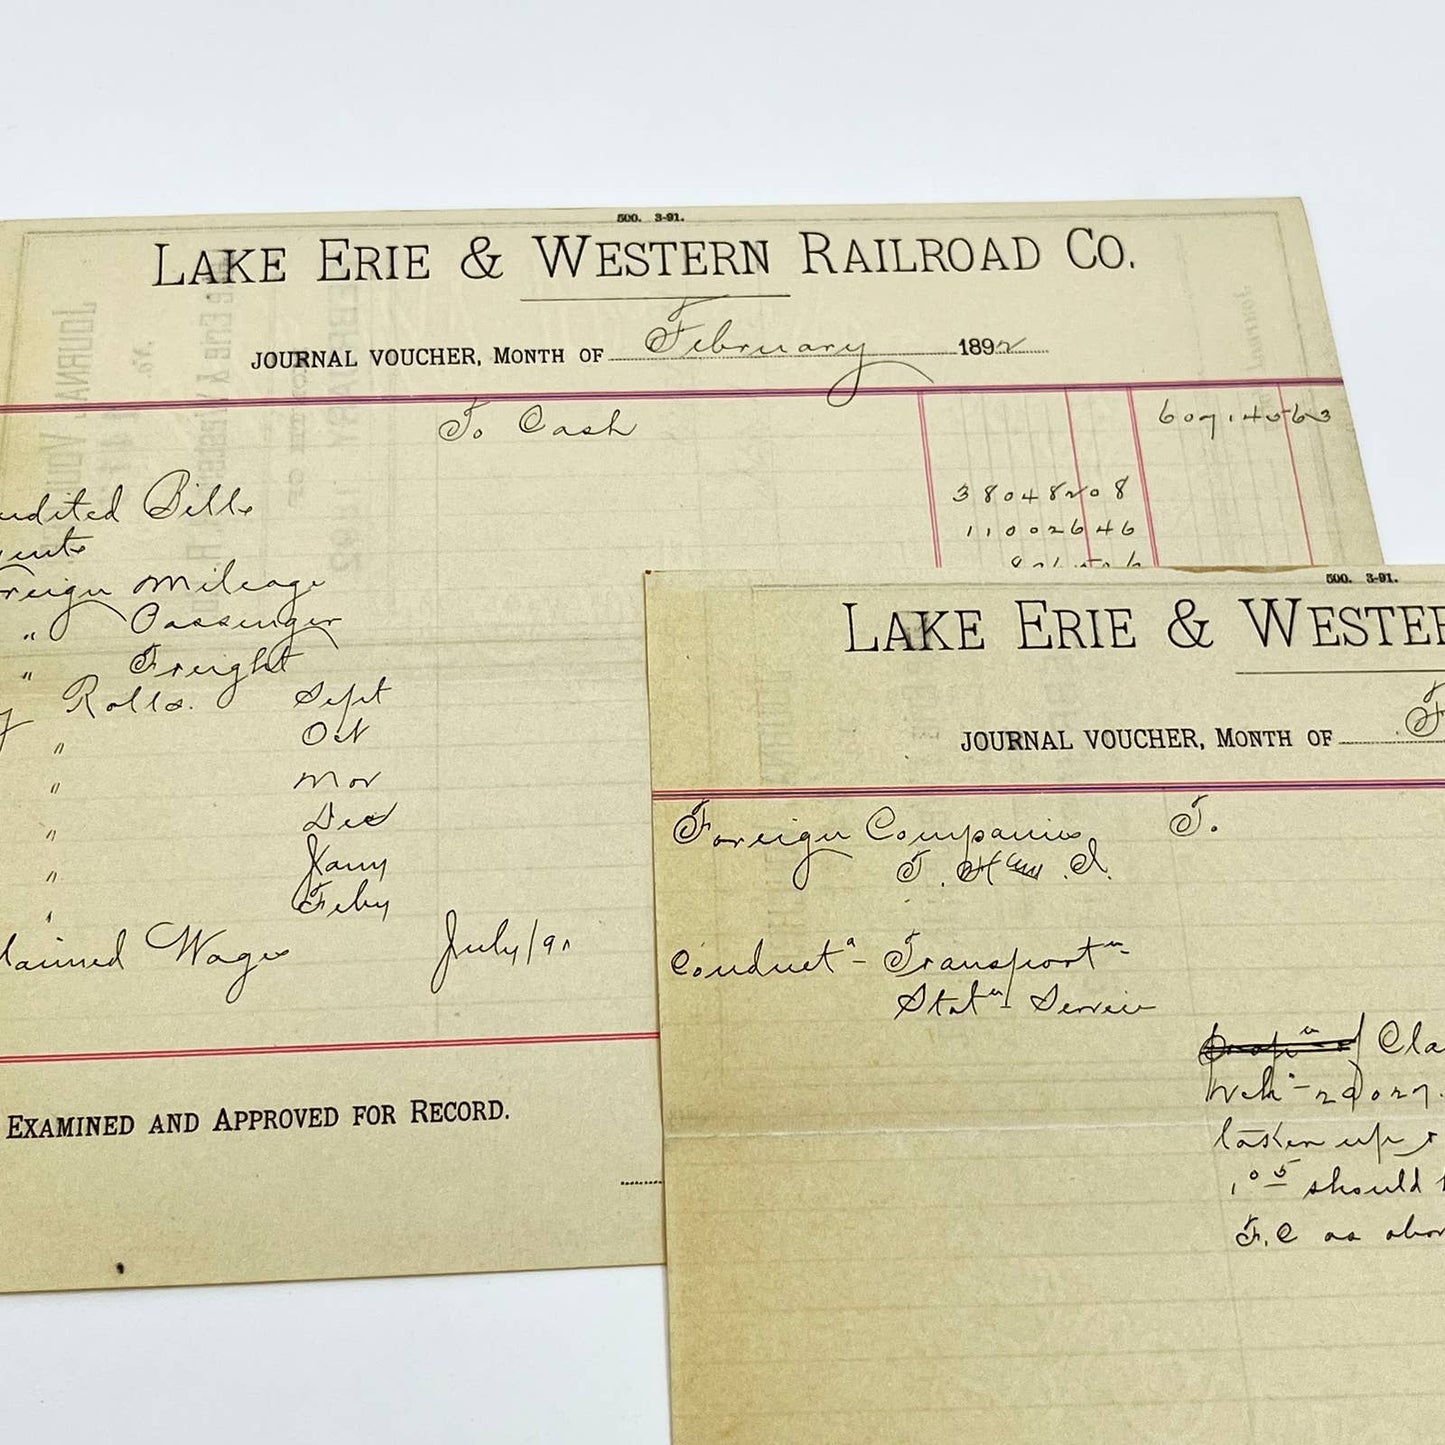 500. 3-91.
LAKE ERIE & WESTERN RAILROAD CO.
JOURNAL VOUCHER, MONTH OF February 1892
To Cash 60714563
udited Bills 38048208
ents 11002646
reign Mileage
" Passenger
" Freight
y Rolls. Sept
" Oct
" Nov
" Dec
" Jany
" Feby
laimed Wages July/91
EXAMINED AND APPROVED FOR RECORD.
500. 3-91.
LAKE ERIE & WESTER
JOURNAL VOUCHER, MONTH OF F
Foreign Companies T.
Conduct^g - Transport^n
Stat^n Service
Cla
taken up &
1 05 should
F.C as abov